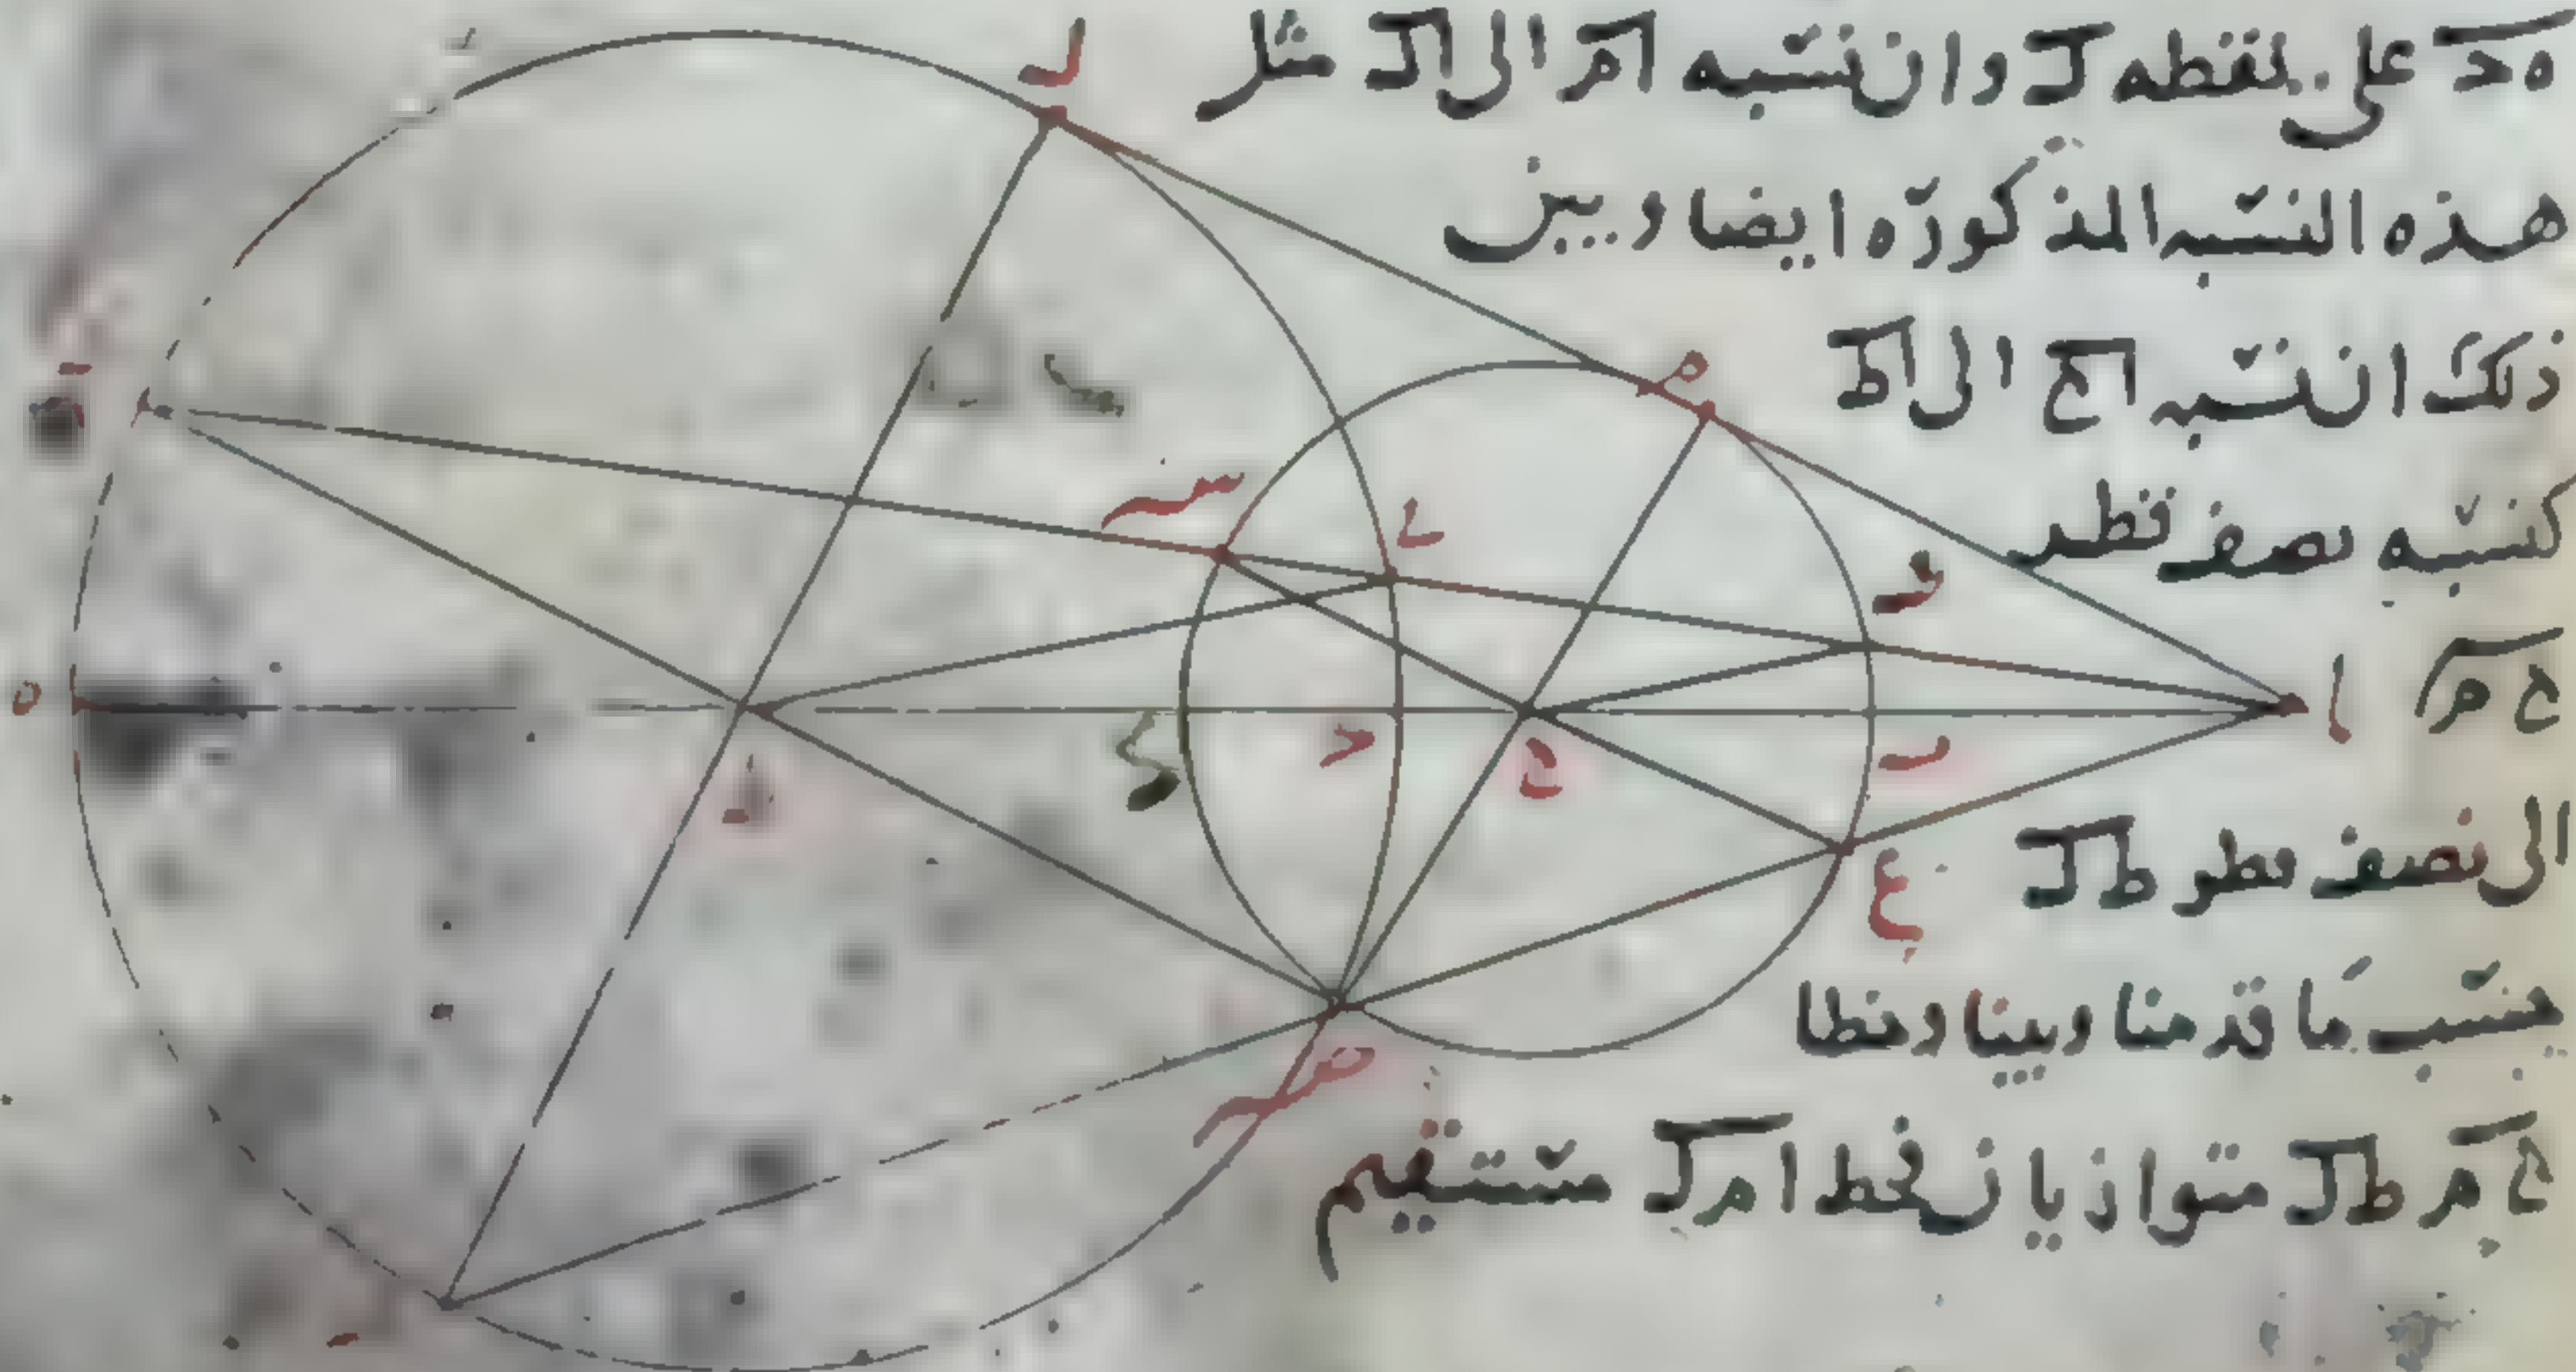 ه د على نقطه ك وان نسبه ا م الى ا ك مثل
هذه النسبه المذكوره ايضا وبين
ذلك ان نسبه ا ح الى ا ط
كنسبه نصف قطر
ح م
الى نصف قطر ط ك
حسب ما قدمنا وبينا وخطا
ح م ط ك متوازيان فخط ا م ك مستقيم
ل
م
س
و
ا
ه
د
ح
ع
ص